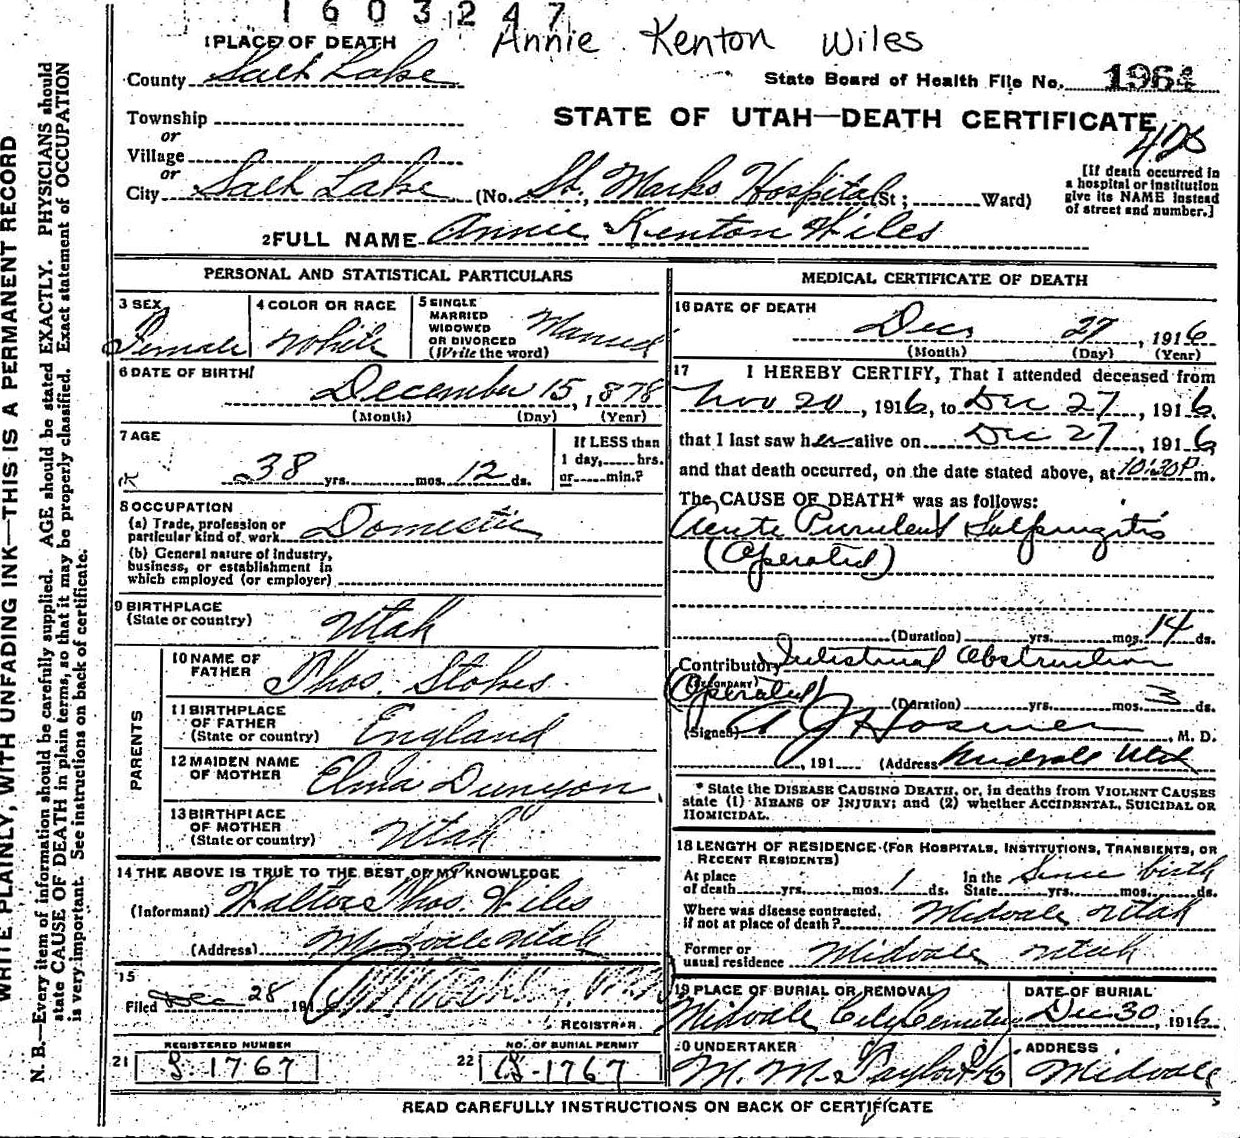 1603247
Annie Kenton Wiles
1 PLACE OF DEATH
County Salt Lake
State Board of Health File No. 1964
Township
or
STATE OF UTAH—DEATH CERTIFICATE
Village
or
City Salt Lake (No. St, Marks Hospital St; Ward)
[If death occurred in
a hospital or institution
give its NAME instead
of street and number.]
2 FULL NAME Annie Kenton Wiles
PERSONAL AND STATISTICAL PARTICULARS
3 SEX
Female
4 COLOR OR RACE
White
5 SINGLE
MARRIED
WIDOWED
OR DIVORCED
(Write the word)
Married
6 DATE OF BIRTH
December 15, 1878
(Month) (Day) (Year)
7 AGE
38 yrs. mos. 12 ds.
If LESS than
1 day, hrs.
or min.?
8 OCCUPATION
(a) Trade, profession or
particular kind of work Domestic
(b) General nature of industry,
business, or establishment in
which employed (or employer)
9 BIRTHPLACE
(State or country) Utah
PARENTS
10 NAME OF
FATHER Thos. Stokes
11 BIRTHPLACE
OF FATHER
(State or country) England
12 MAIDEN NAME
OF MOTHER Elma Dunyon
13 BIRTHPLACE
OF MOTHER
(State or country) Utah
14 THE ABOVE IS TRUE TO THE BEST OF MY KNOWLEDGE
(Informant) Walter Thos. Wiles
(Address) Midvale Utah
15
Filed Dec 28 1916
REGISTRAR
REGISTERED NUMBER
21 1767
NO. OF BURIAL PERMIT
22 1767
MEDICAL CERTIFICATE OF DEATH
16 DATE OF DEATH
Dec 27, 1916
(Month) (Day) (Year)
17 I HEREBY CERTIFY, That I attended deceased from
Nov 20, 1916, to Dec 27, 1916,
that I last saw her alive on Dec 27, 1916
and that death occurred, on the date stated above, at 10:30 P m.
The CAUSE OF DEATH* was as follows:
Acute Purulent Salpingitis
(Operated)
(Duration) yrs. mos. 14 ds.
Contributory Intestinal Obstruction
(SECONDARY)
Operated (Duration) yrs. mos. 3 ds.
(Signed) A J Hosmer, M. D.
, 191 (Address Midvale Utah
* State the DISEASE CAUSING DEATH, or, in deaths from VIOLENT CAUSES
state (1) MEANS OF INJURY; and (2) whether ACCIDENTAL, SUICIDAL OR
HOMICIDAL.
18 LENGTH OF RESIDENCE (FOR HOSPITALS, INSTITUTIONS, TRANSIENTS, OR
RECENT RESIDENTS)
At place
of death yrs. mos. 1 ds.
In the
State Since birth yrs. mos. ds.
Where was disease contracted,
if not at place of death? Midvale Utah
Former or
usual residence Midvale Utah
19 PLACE OF BURIAL OR REMOVAL
Midvale City Cemetery
DATE OF BURIAL
Dec 30, 1916
20 UNDERTAKER
M. M.
ADDRESS
Midvale
READ CAREFULLY INSTRUCTIONS ON BACK OF CERTIFICATE
WRITE PLAINLY, WITH UNFADING INK—THIS IS A PERMANENT RECORD
N. B.—Every item of information should be carefully supplied. AGE should be stated EXACTLY. PHYSICIANS should
state CAUSE OF DEATH in plain terms, so that it may be properly classified. Exact statement of OCCUPATION
is very important. See instructions on back of certificate.